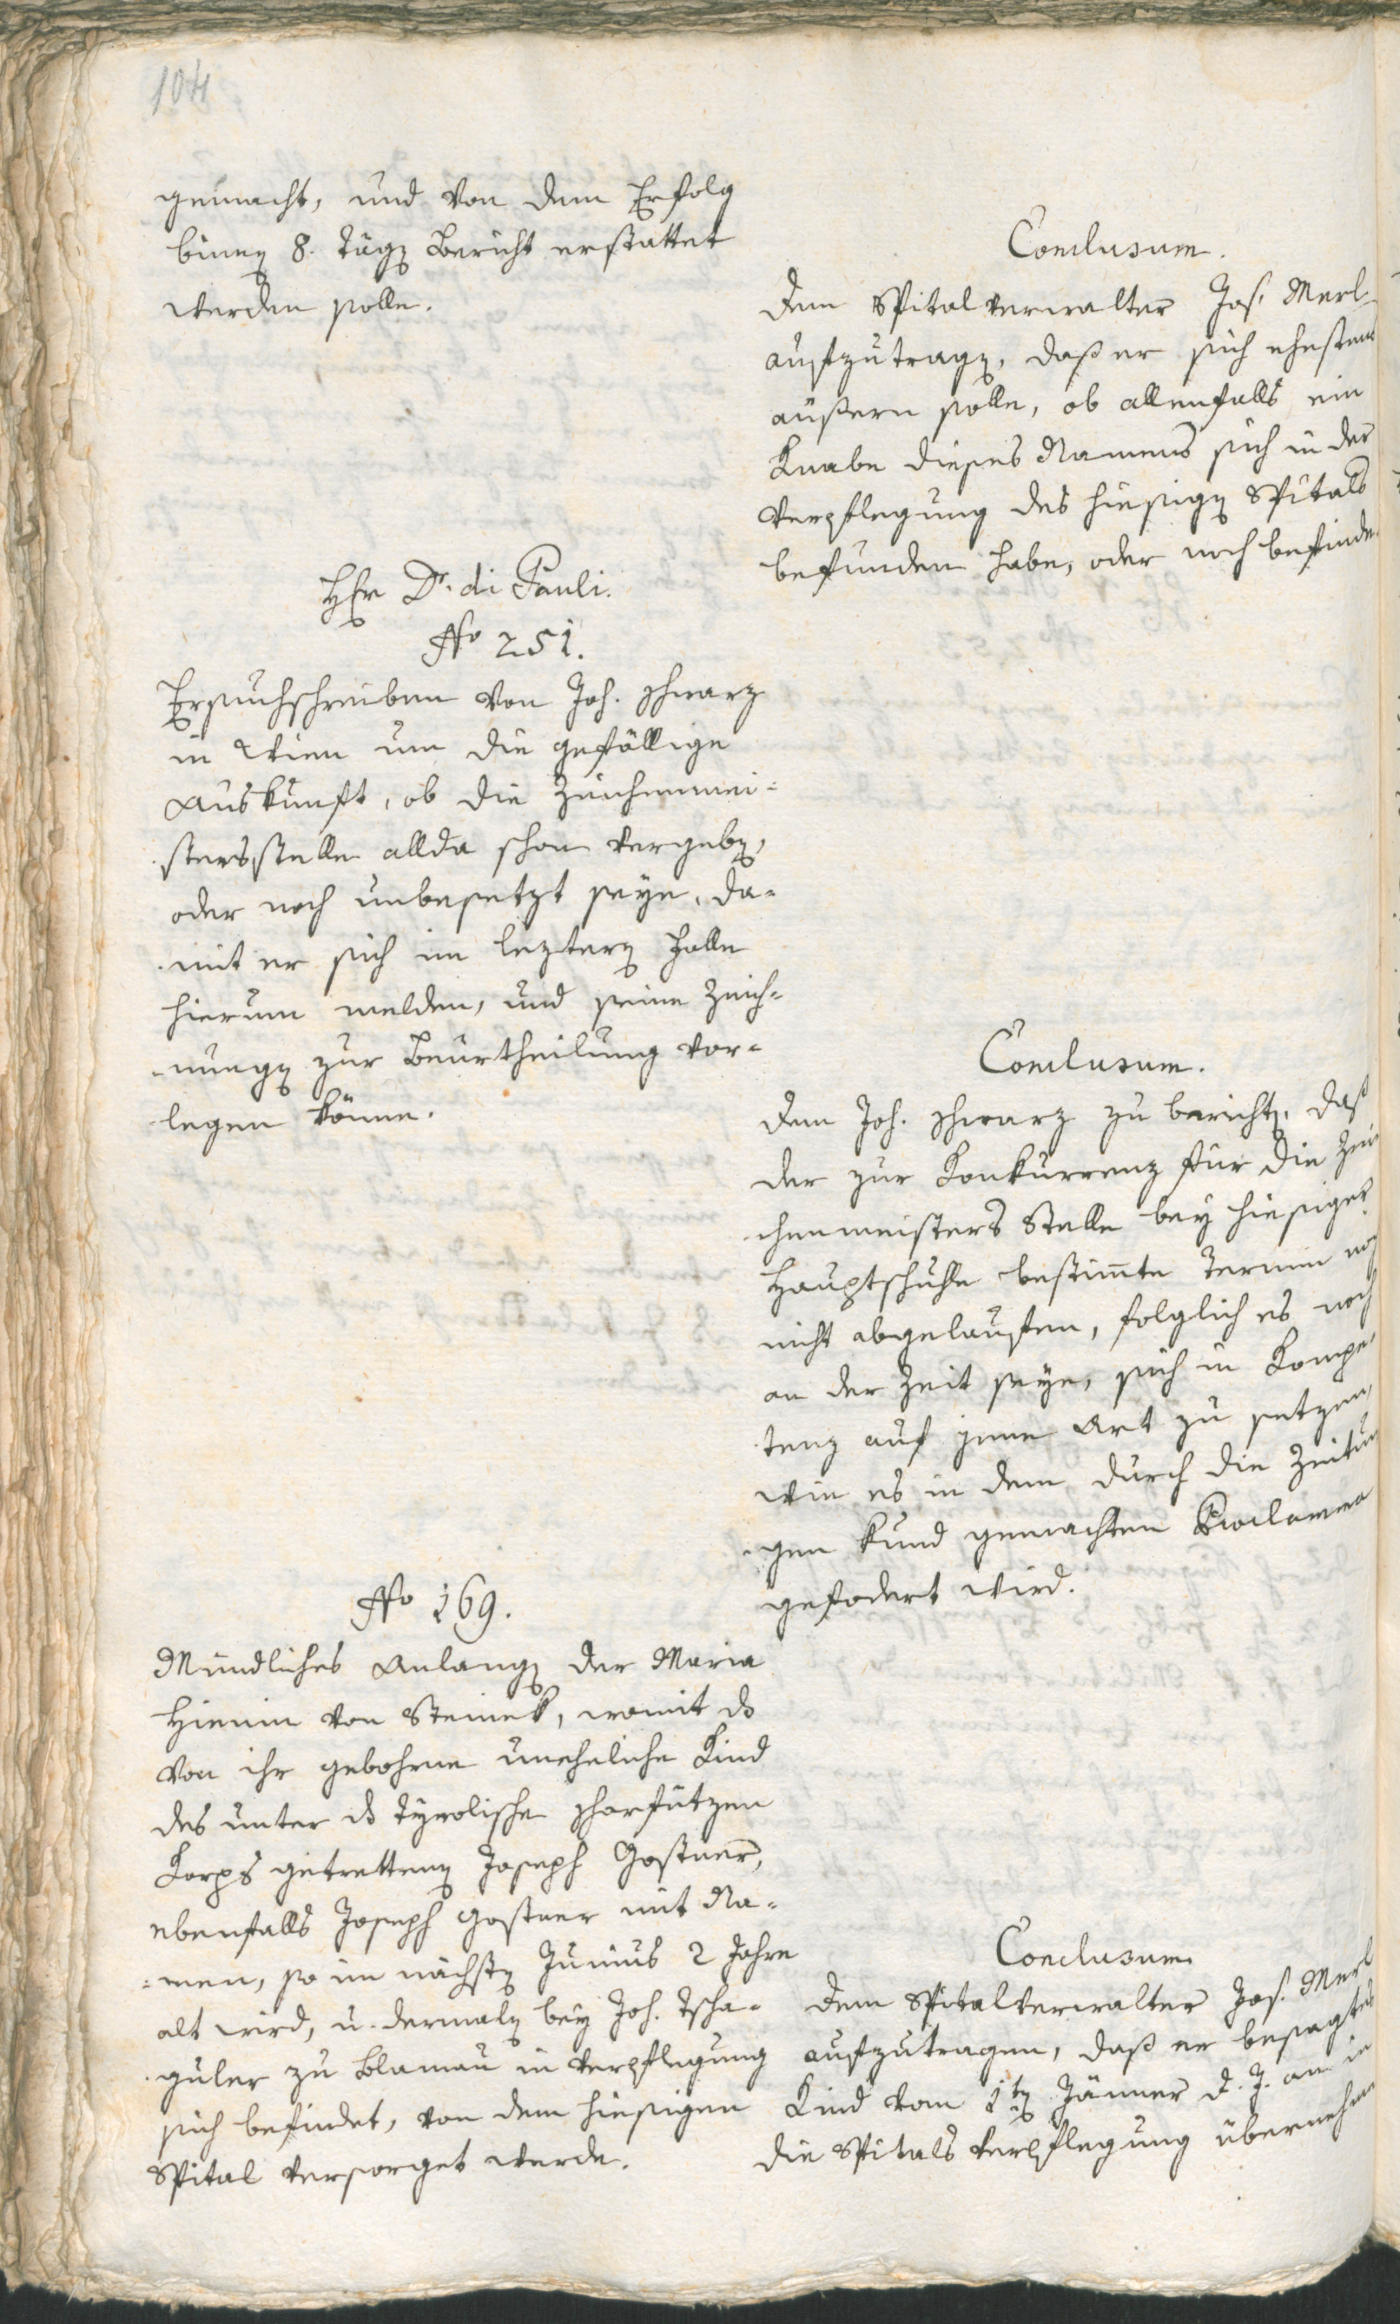 104
gemacht, und von dem Erfolg
binen 8. Tägen Bericht erstattet
werden solle.
Conclusum.
Dem Spitalverwalter Jos. Merl
aufzutragen, daß er sich ehestens
äußern solle, ob allenfalls ein
Knabe dieses Namens sich in der
Verpflegung des hiesigen Spitals
befunden habe, oder noch befinde.
Hr Dr. di Pauli.
No 251.
Ersuchschreiben von Joh. Schwarz
in Wien um die gefällige
Auskunft, ob die Zeichenmei=
stersstelle allda schon vergeben,
oder noch unbesetzt seye, da=
mit er sich im leztern Falle
hierum melden, und seine Zeich=
nungen zur Beurtheilung vor=
legen könne.
Conclusum.
Dem Joh. Schwarz zu berichten, daß
der zur Konkurrenz für die Zei
chenmeisters Stelle bey hiesiger
Hauptschulle bestimte Termin noch
nicht abgelauffen, folglich es noch
an der Zeit seye, sich in Kompe
tenz auf jene Art zu setzen,
wie es in dem durch die Zeitun
gen kund gemachten Proclama
gefodert wird.
No 169.
Mündliches Anlangen der Maria
Hienin von Steinek, womit ds
von ihr gebohrne uneheliche Kind
des unter ds tyrolische Scharfützen
Korps getrettenen Joseph Gostner,
ebenfalls Joseph Gostner mit Na=
=men, so im nächsten Junius 2 Jahre
alt wird, u. dermalen bey Joh. Tscha=
guler zu Blamau in Verpflegung
sich befindet, von dem hiesigen
Spital versorget werde.
Conclusum
Dem Spitalverwalter Jos. Merl
aufzutragen, daß er besagtes
Kind vom 1ten Jänner d. J. an in
die Spitals Verpflegung übernehme